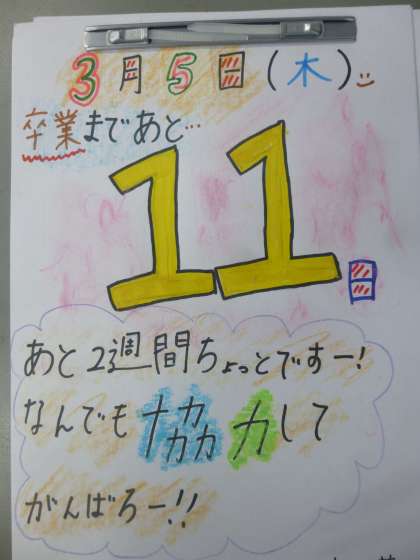 3月5日(木)
卒業まであと…
11日
あと2週間ちょっとですー!
なんでも協力して
がんばろー!!